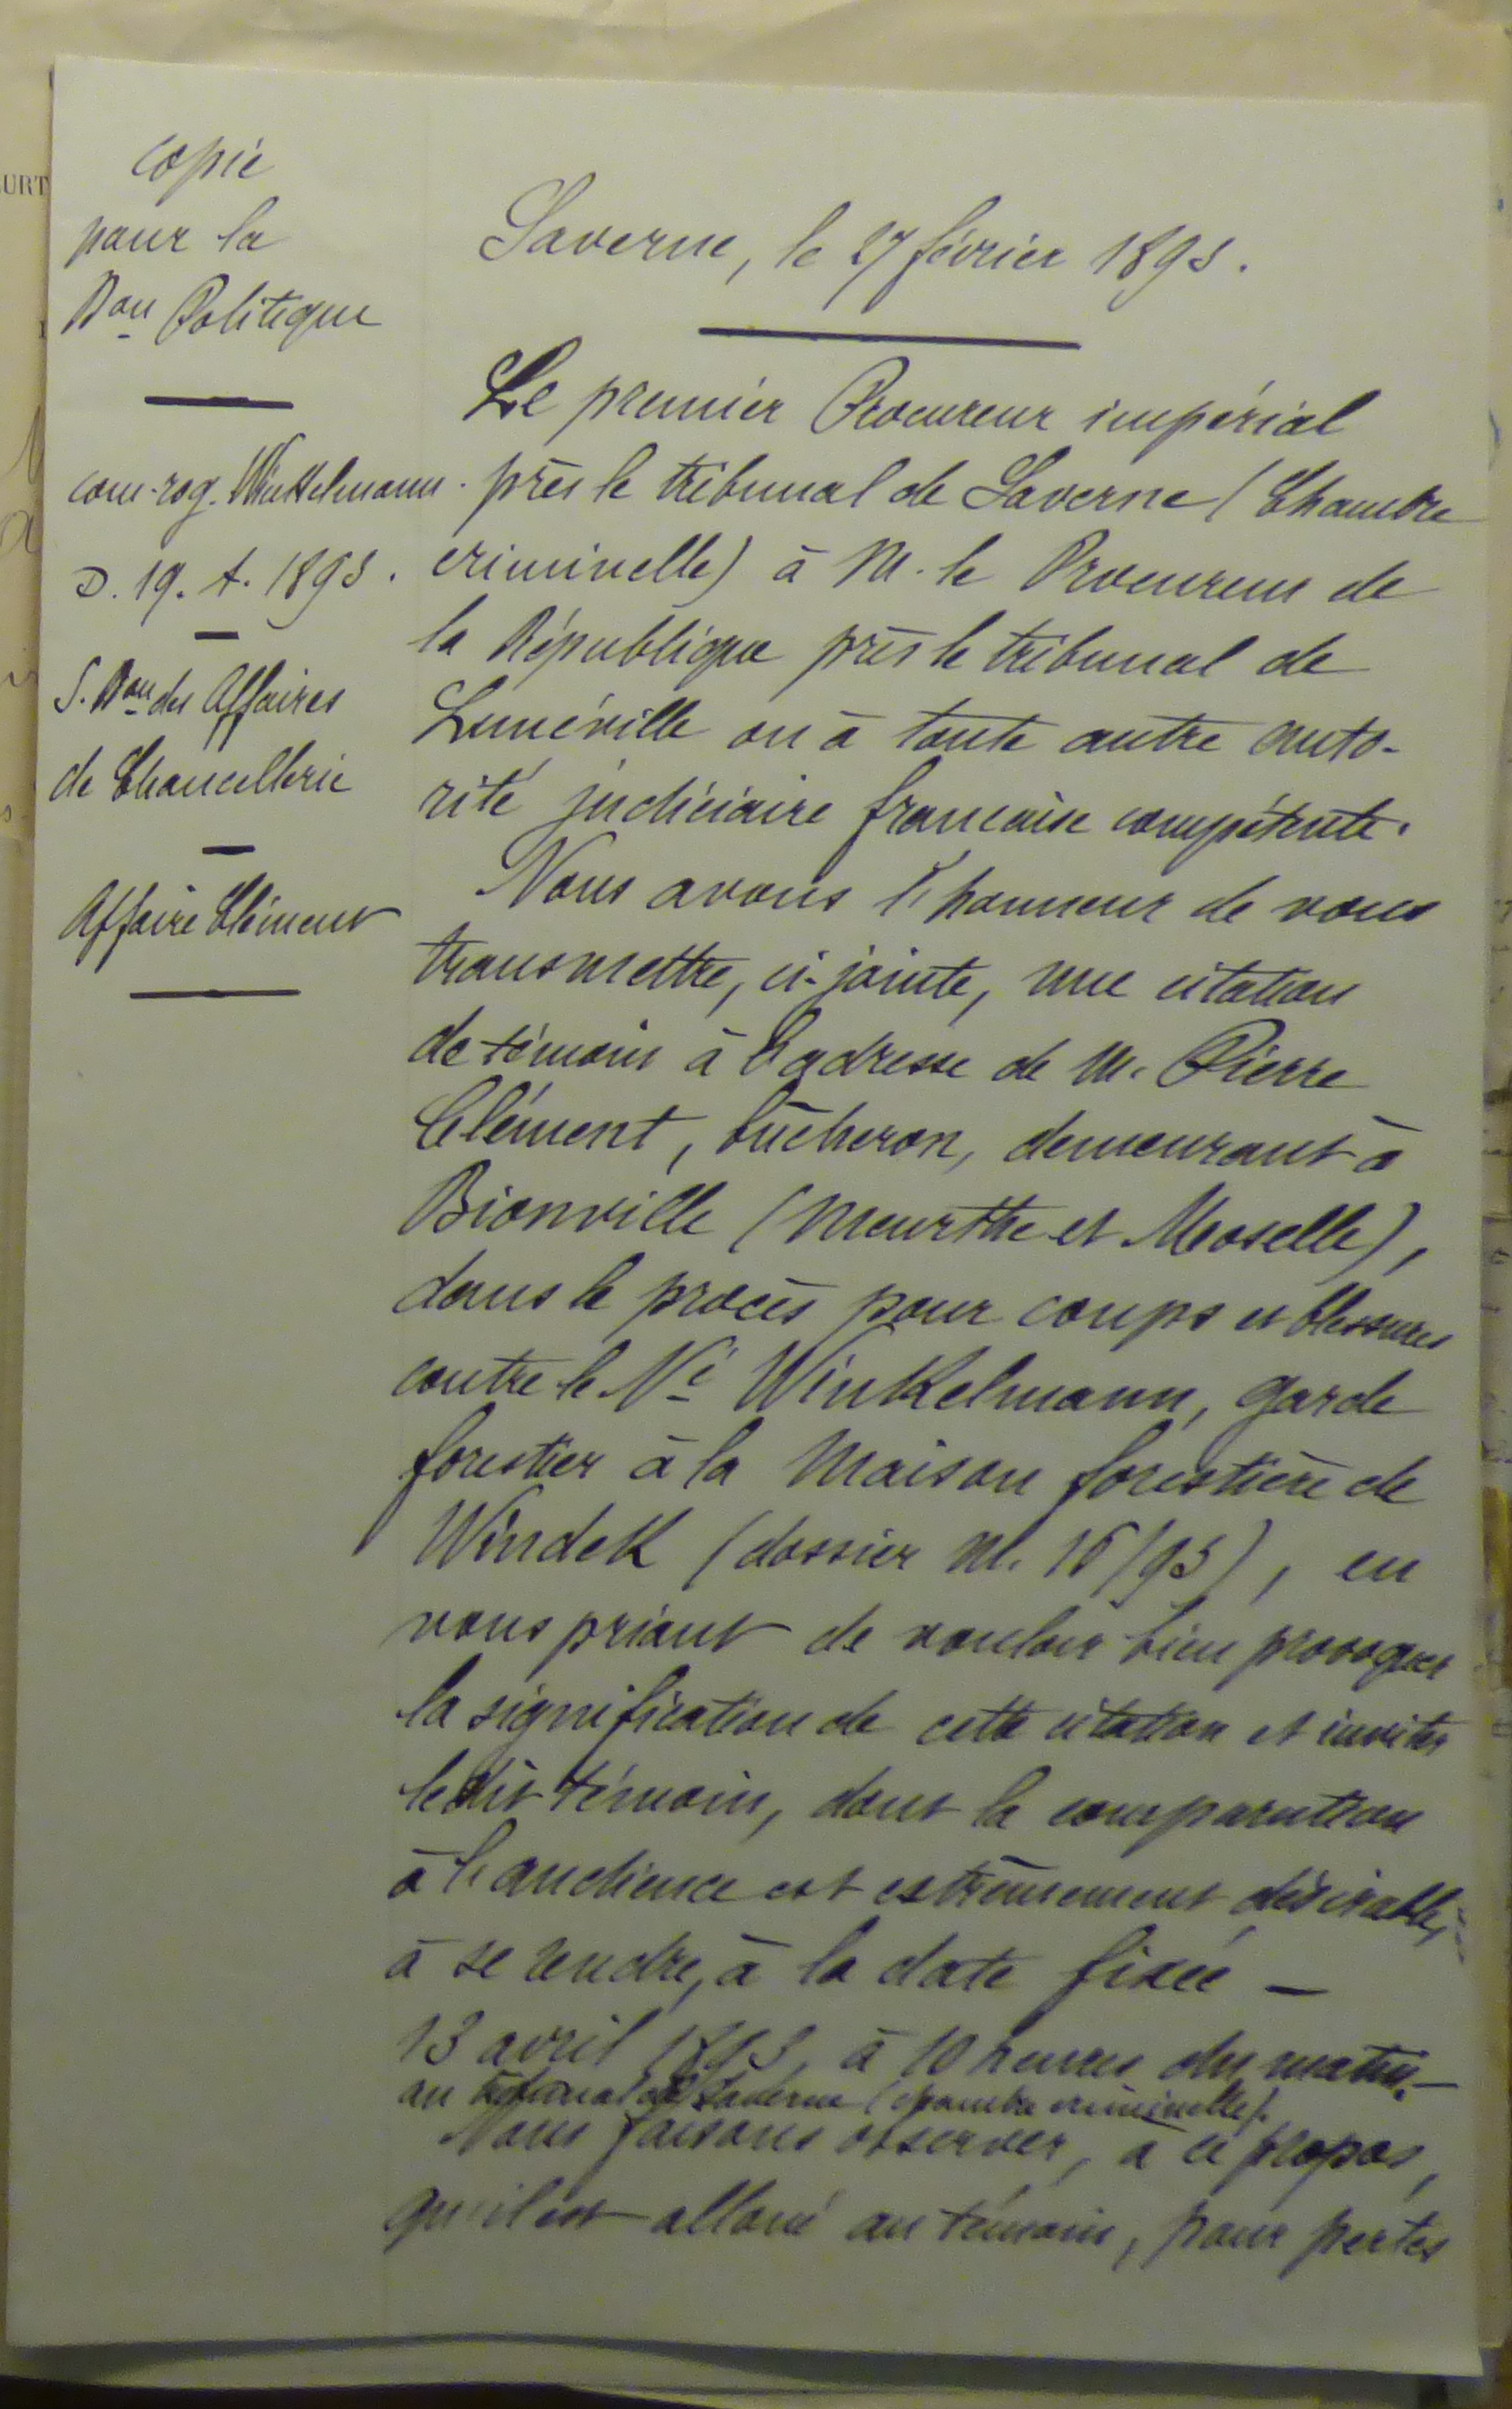 copie
pour la
Don Politique
com. rog. Winkelmann.
D. 19. A. 1893.
S. Don des Affaires
de Chancellerie
Affaire Clément
Saverne, le 27 février 1893.
Le premier Procureur impérial
près le tribunal de Saverne (Chambre
criminelle) à M. le Procureur de
la République près le tribunal de
Lunéville ou à toute autre auto-
rité judiciaire française compétente.
Nous avons l'honneur de vous
transmettre, ci-jointe, une citation
de témoin à l'adresse de M. Pierre
Clément, bûcheron, demeurant à
Bionville (Meurthe et Moselle),
dans le procès pour coups et blessures
contre le Né Winkelmann, garde
forestier à la Maison forestière de
Windek (dossier M. 16/93), en
vous priant de vouloir bien provoquer
la signification de cette citation et inviter
ledit témoin, dont la comparution
à l'audience est extrêmement désirable,
à se rendre, à la date fixée —
13 avril 1893, à 10 heures du matin. —
au tribunal de Saverne (chambre criminelle).
Nous faisons observer, à ce propos,
qu'il est alloué au témoin, pour pertes